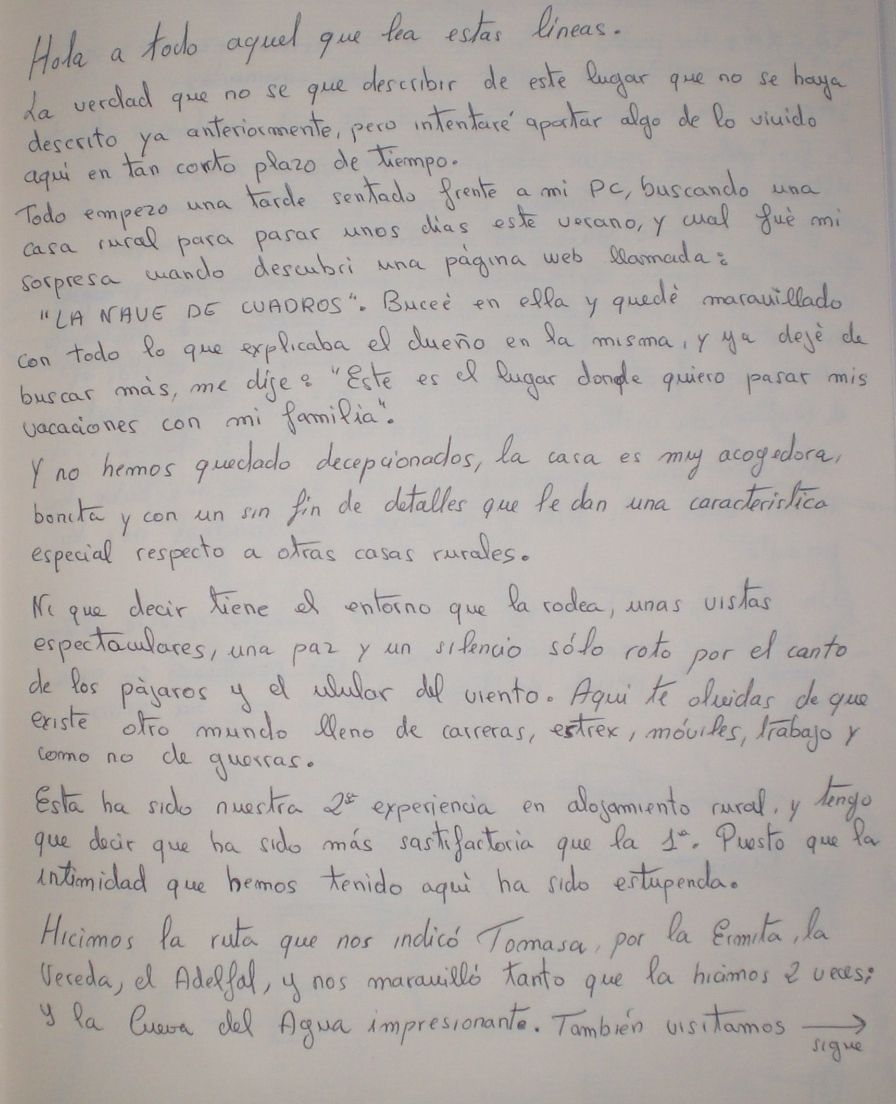 Hola a todo aquel que lea estas líneas.
La verdad que no se que describir de este lugar que no se haya
descrito ya anteriormente, pero intentaré aportar algo de lo vivido
aquí en tan corto plazo de tiempo.
Todo empezo una tarde sentado frente a mi PC, buscando una
casa rural para pasar unos dias este verano, y cual fuè mi
sorpresa cuando descubri una página web llamada:
"LA NAVE DE CUADROS". Buceè en ella y quedè maravillado
con todo lo que explicaba el dueño en la misma, y ya dejè de
buscar màs, me dije: "Este es el lugar donde quiero pasar mis
vacaciones con mi familia".
Y no hemos quedado decepcionados, la casa es muy acogedora,
bonita y con un sin fin de detalles que le dan una caracteristica
especial respecto a otras casas rurales.
Ni que decir tiene el entorno que la rodea, unas vistas
espectaculares, una paz y un silencio sólo roto por el canto
de los pàjaros y el ulular del viento. Aqui te olvidas de que
existe otro mundo lleno de carreras, estrex, móviles, trabajo y
como no de guerras.
Esta ha sido nuestra 2ª experiencia en alojamiento rural, y tengo
que decir que ha sido más sastifactoria que la 1ª. Puesto que la
intimidad que hemos tenido aquì ha sido estupenda.
Hicimos la ruta que nos indicó Tomasa, por la Ermita, la
Vereda, el Adelfal, y nos maravilló tanto que la hicimos 2 veces;
y la Cueva del Agua impresionante. También visitamos →
sigue